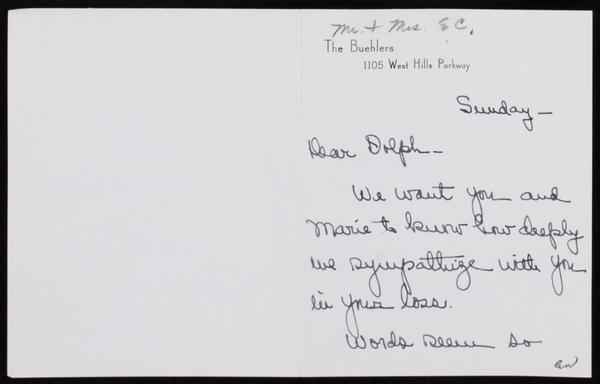 Mr. & Mrs. E C.
The Buehlers
1105 West Hills Parkway
Sunday —
Dear Dolph —
We want you and
Marie to know how deeply
we sympathize with you
in your loss.
Words seem so